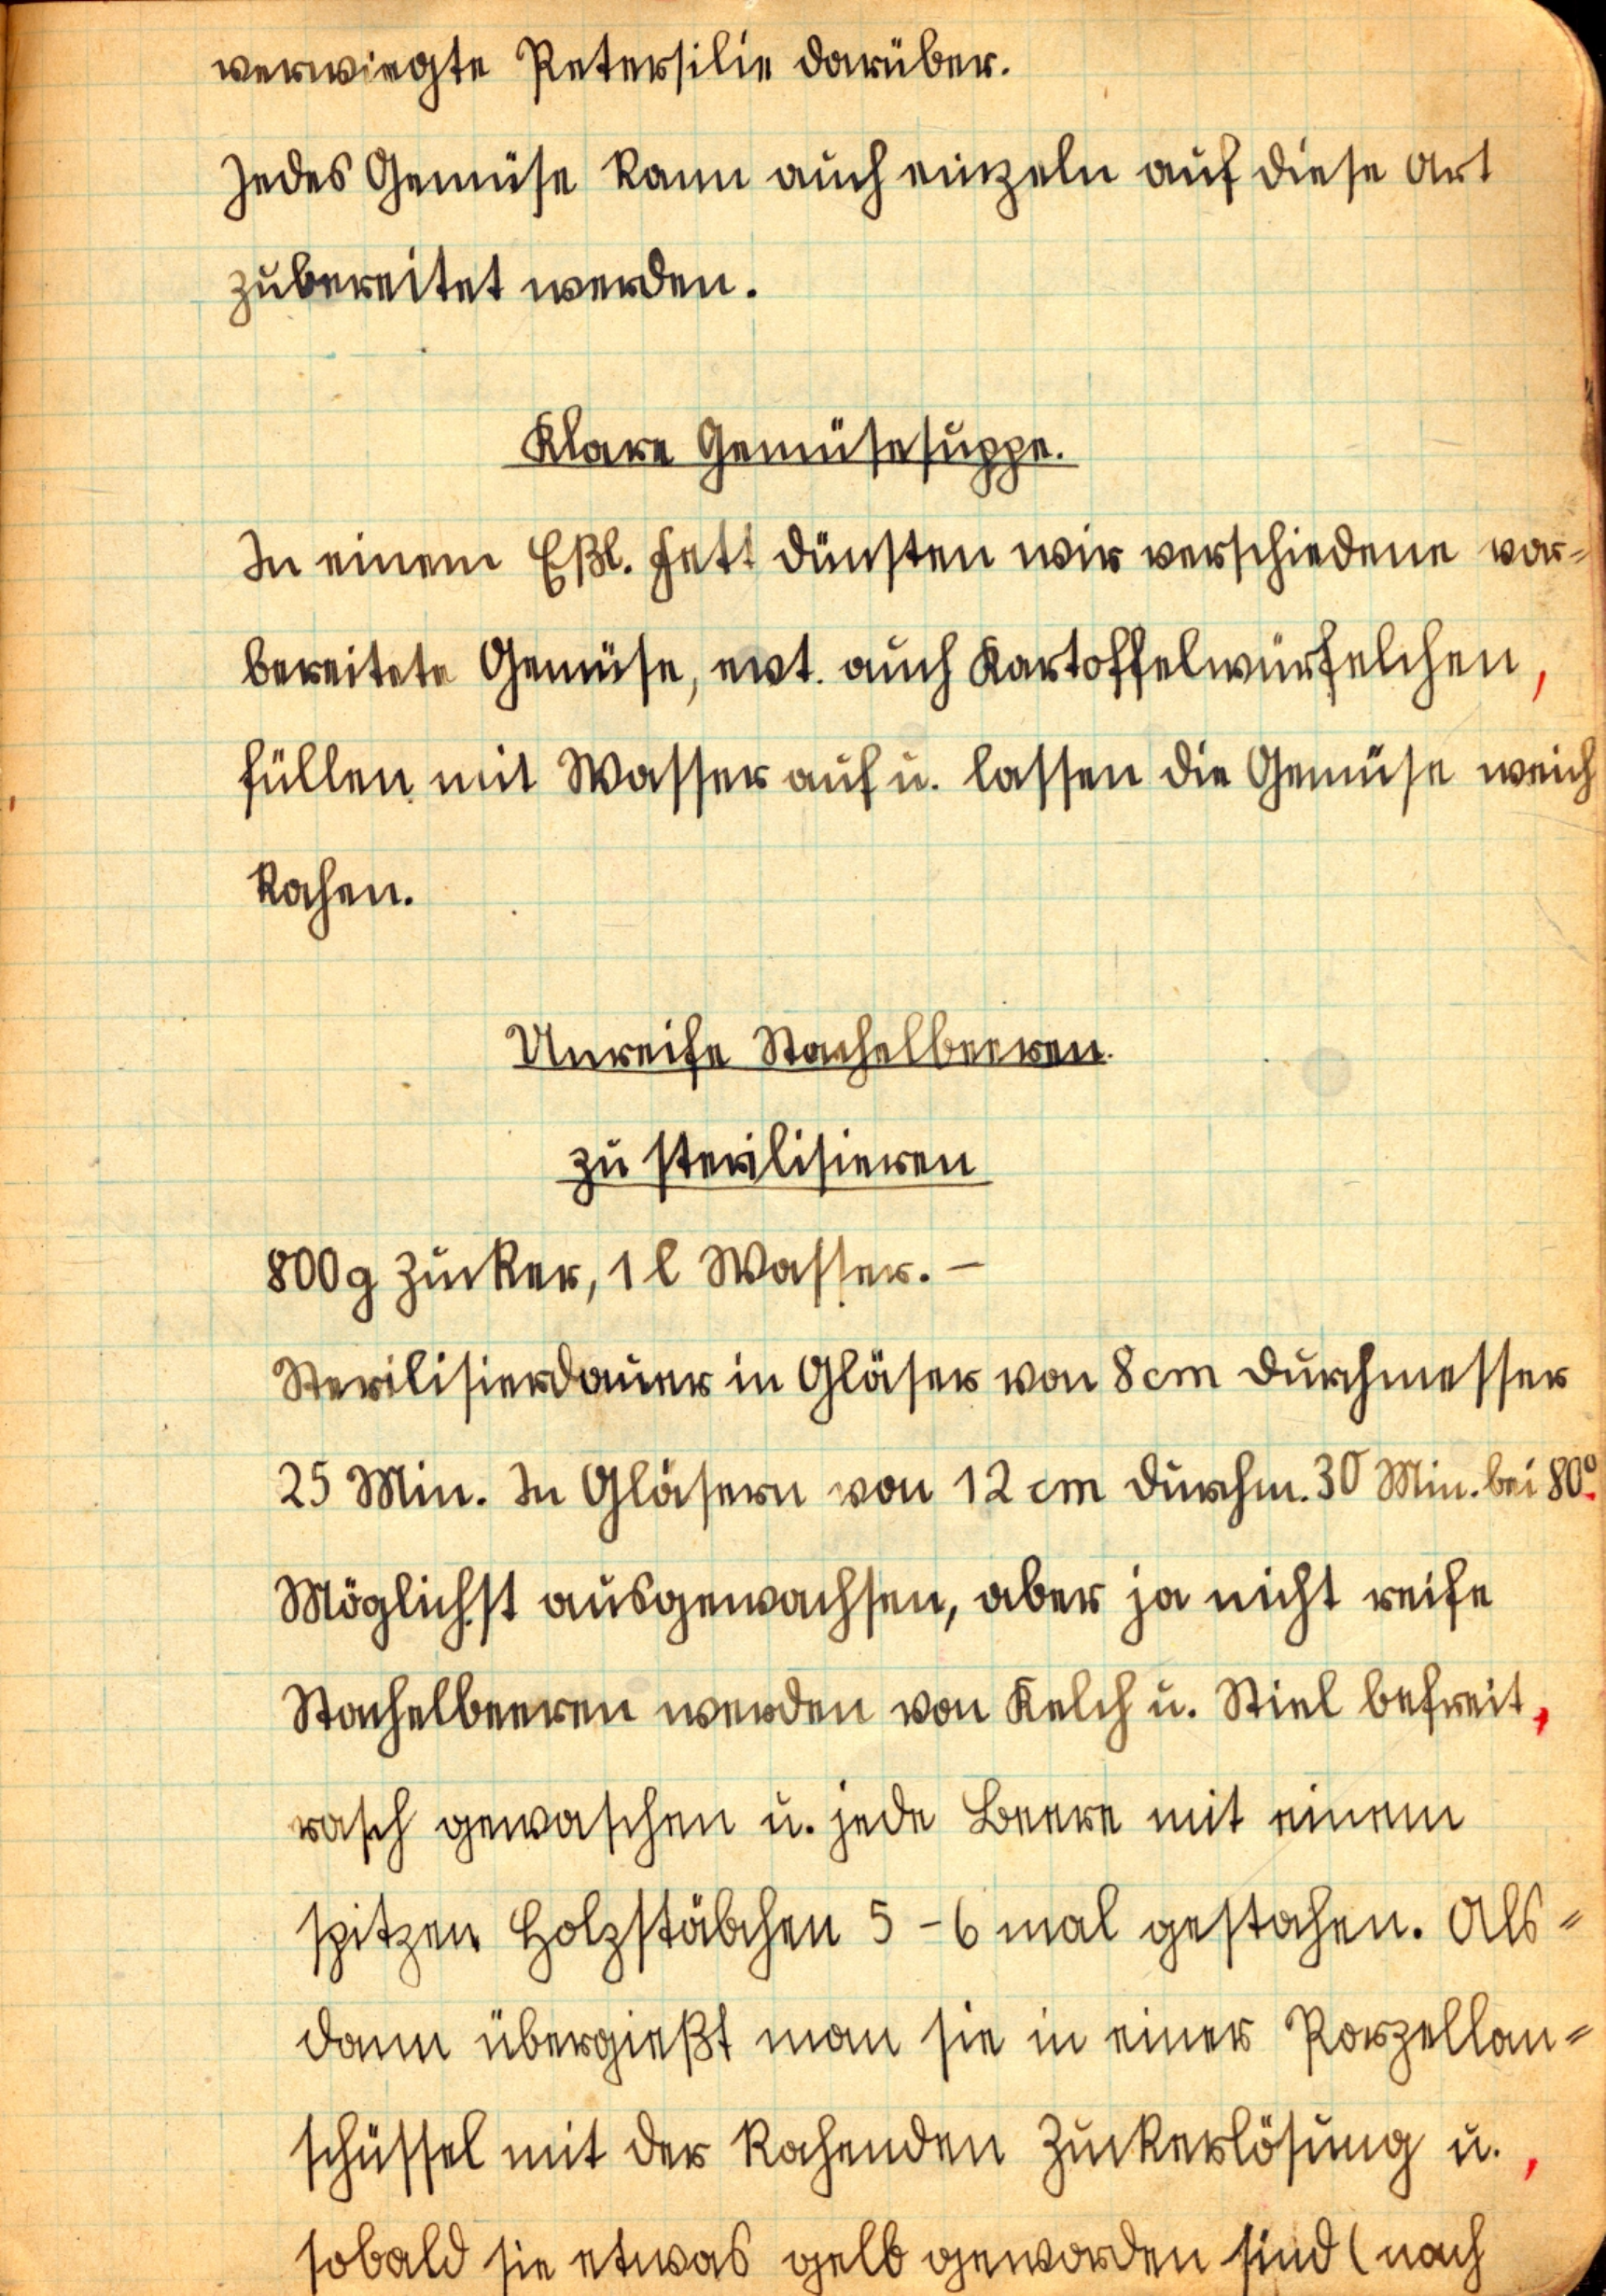 verwiegte Petersilie darüber.
Jedes Gemüse kann auch einzeln auf diese Art
zubereitet werden.
Klare Gemüsesuppe.
In einem Eßl. Fett dünsten wir verschiedene vor=
bereitete Gemüse, evt. auch Kartoffelwürfelchen,
füllen mit Wasser auf u. lassen die Gemüse weich
kochen.
Unreife Stachelbeeren.
zu sterilisieren
800g Zucker, 1 l Wasser. —
Sterilisierdauer in Gläser von 8 cm Durchmesser
25 Min. In Gläsern von 12 cm Durchm. 30 Min. bei 80°.
Möglichst ausgewachsen, aber ja nicht reife
Stachelbeeren werden von Kelch u. Stiel befreit,
rasch gewaschen u. jede Beere mit einem
spitzen Holzstäbchen 5 – 6 mal gestochen. Als=
dann übergießt man sie in einer Porzellan=
schüssel mit der kochenden Zuckerlösung u. ,
sobald sie etwas gelb geworden sind (nach